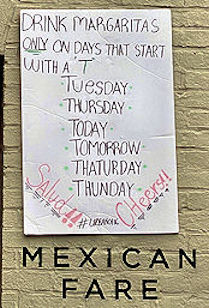 DRINK MARGARITAS
ONLY ON DAYS THAT START
WITH A 'T'
TUESDAY
THURSDAY
TODAY
TOMORROW
THATURDAY
THUNDAY
SALUD!!!
CHEERS!!
MEXICAN
FARE